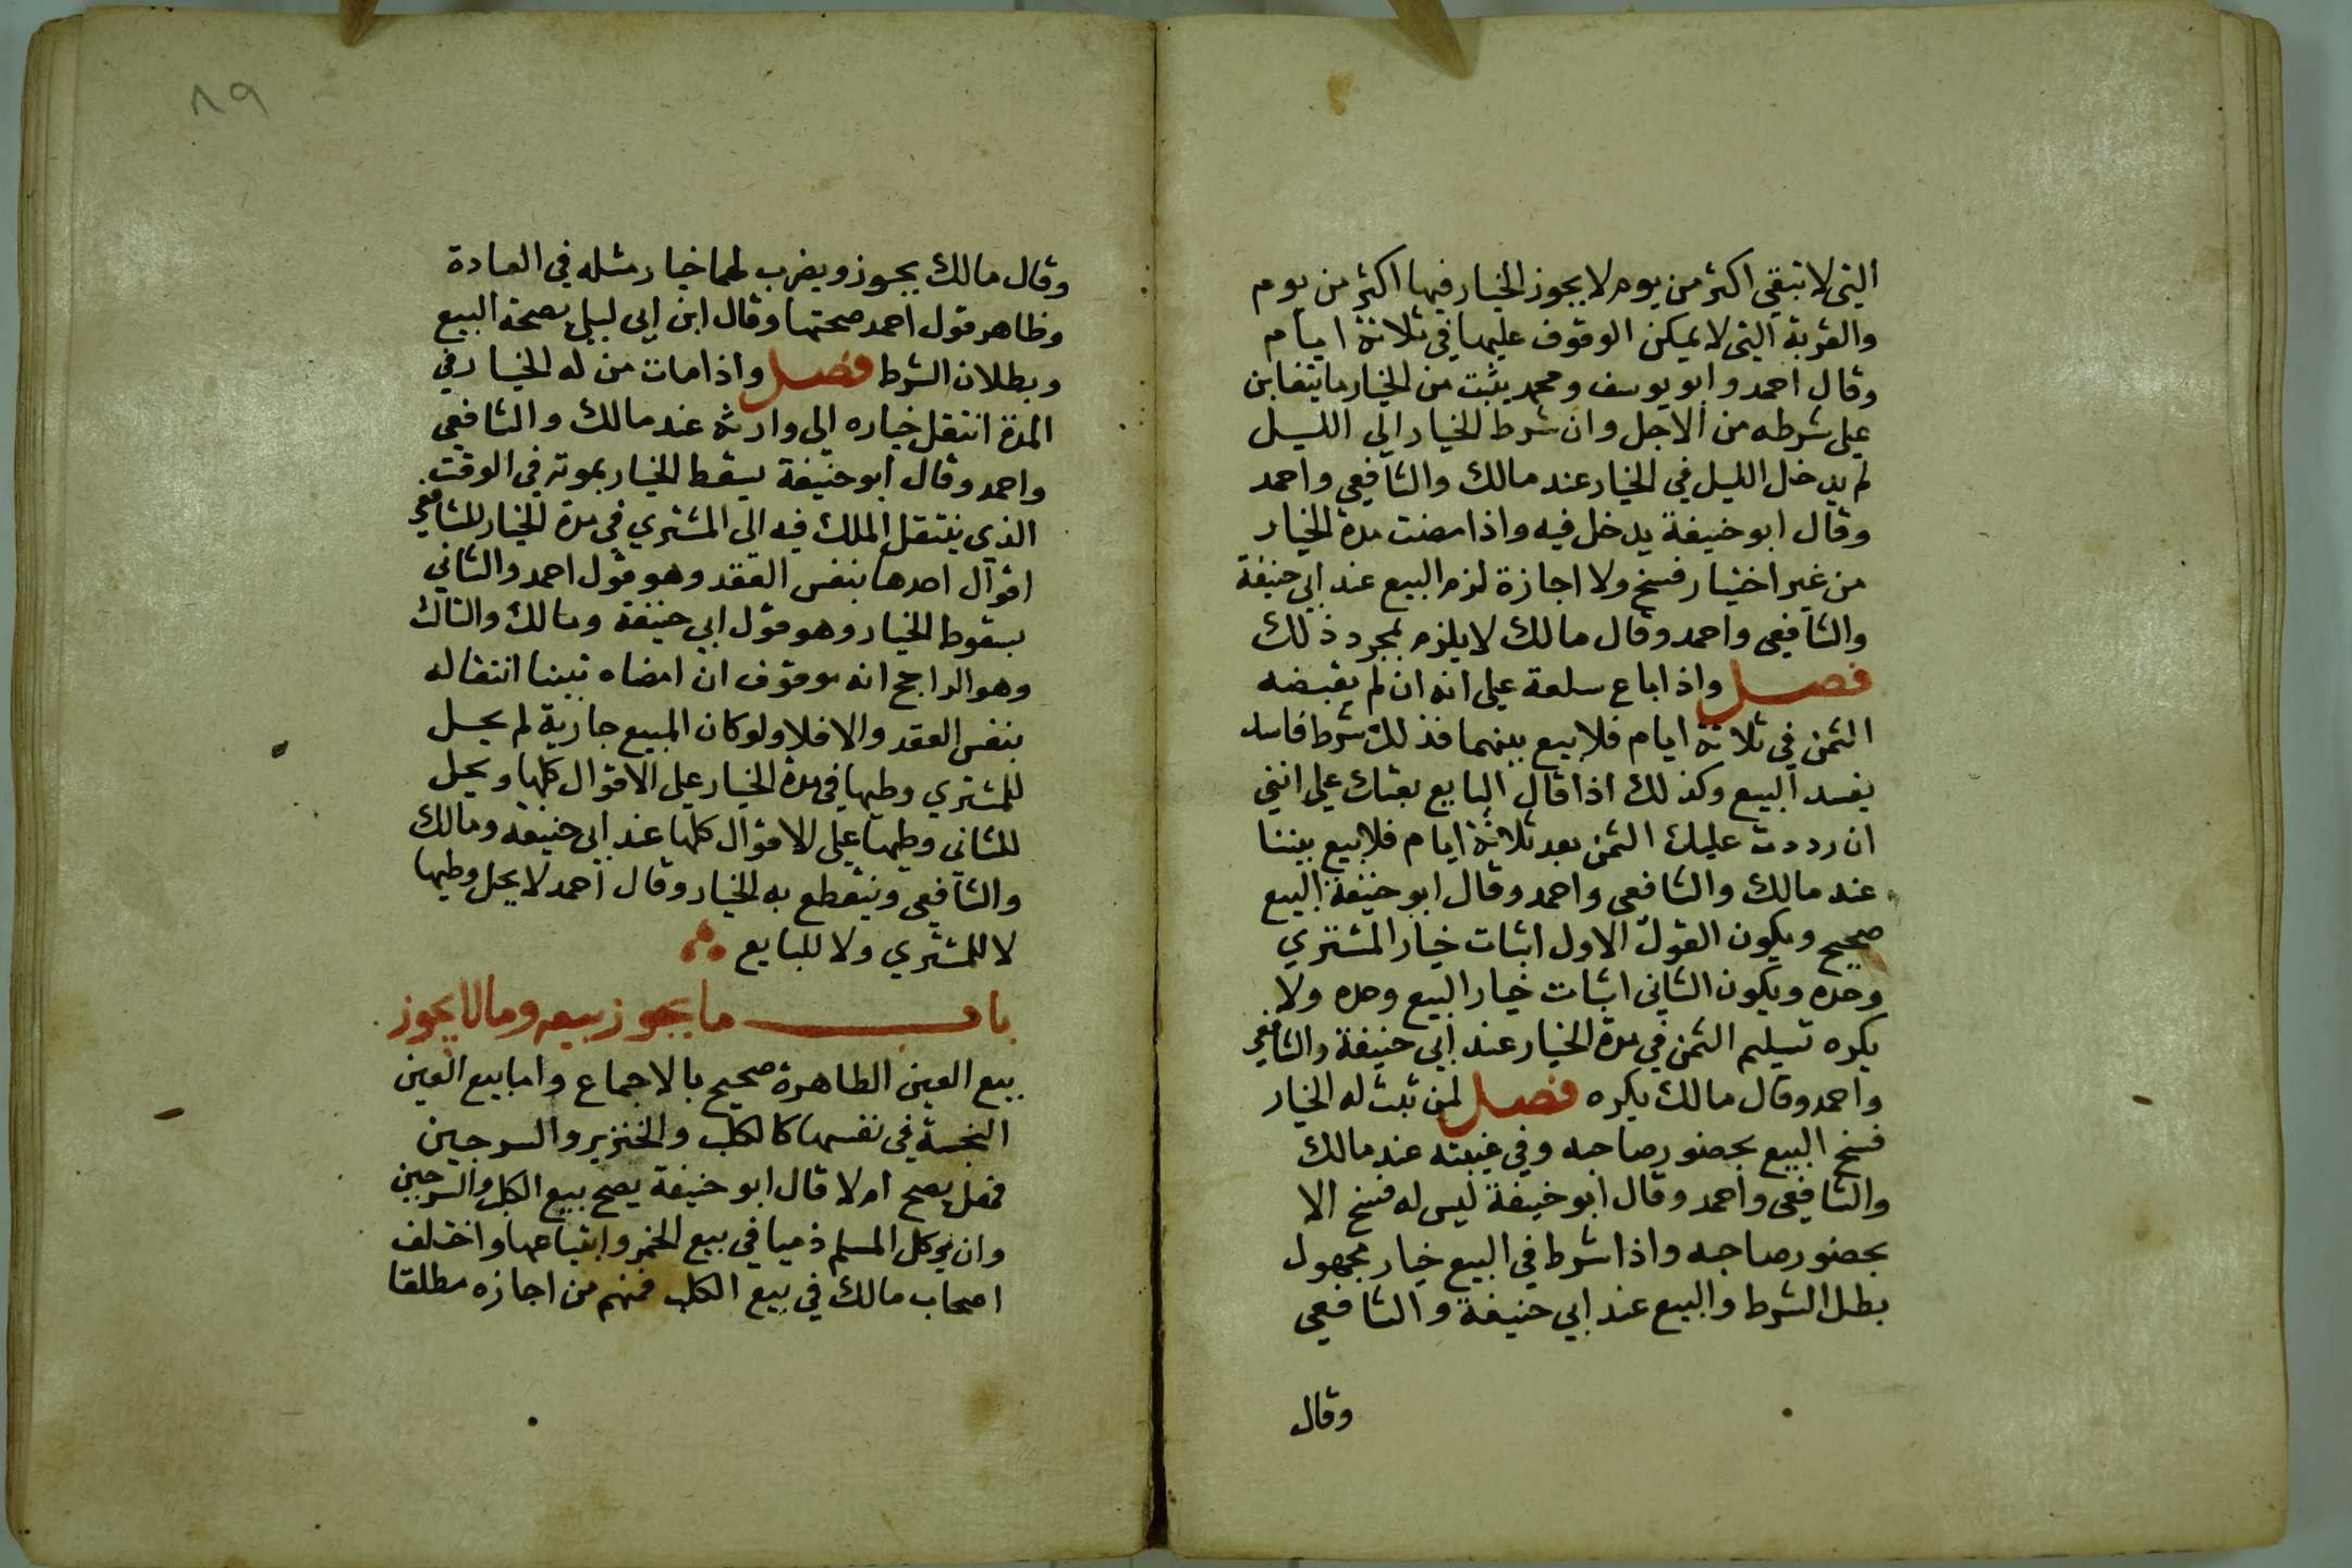 التي لا تبقي اكثر من يوم لا يجوز الخيار فيها اكثر من يوم
والقرية التي لا يمكن الوقوف عليها في ثلاثة ايام
وقال احمد وابو يوسف ومحمد يثبت من الخيار ما يتفاين
علي شرطه من الاجل وان شرط الخيار الي الليل
لم يدخل الليل في الخيار عند مالك والشافعي واحمد
وقال ابو حنيفة يدخل فيه واذا مضت مدة الخيار
من غير اختيار فسخ ولا اجازة لزم البيع عند ابي حنيفة
والشافعي واحمد وقال مالك لا يلزم بمجرد ذلك
فصل واذا باع سلعة علي انه ان لم يقبضه
الثمن في ثلاثة ايام فلا بيع بينهما فذلك شرط فاسد
يفسد البيع وكذلك اذا قال البايع بعتك علي انني
ان رددت عليك الثمن بعد ثلاثة ايام فلا بيع بيننا
عند مالك والشافعي واحمد وقال ابو حنيفة البيع
صحيح ويكون القول الاول اثبات خيار المشتري
وحده ويكون الثاني اثبات خيار البيع وحده ولا
يكره تسليم الثمن في مدة الخيار عند ابي حنيفة والشافعي
واحمد وقال مالك يكره فصل لمن ثبت له الخيار
فسخ البيع بحضور صاحبه وفي غيبته عند مالك
والشافعي واحمد وقال ابو حنيفة ليس له فسخ الا
بحضور صاحبه واذا شرط في البيع خيار مجهول
بطل الشرط والبيع عند ابي حنيفة والشافعي
وقال
٨٩
وقال مالك يجوز ويضرب لهما خيار مثله في العادة
وظاهر قول احمد صحتها وقال ابن ابي ليلي بصحة البيع
وبطلان الشرط فصل واذا مات من له الخيار في
المدة انتقل خياره الي وارثه عند مالك والشافعي
واحمد وقال ابو حنيفة يسقط الخيار بموته في الوقت
الذي ينتقل الملك فيه الي المشتري في مدة الخيار للشافعي
اقوال احدها بنفس العقد وهو قول احمد والثاني
بسقوط الخيار وهو قول ابي حنيفة ومالك والثالث
وهو الراجح انه موقوف ان امضاه تبينا انتقاله
بنفس العقد والا فلا ولو كان المبيع جارية لم يحل
للمشتري وطيها في مدة الخيار علي الاقوال كلها ويحل
للثاني وطيها علي الاقوال كلها عند ابي حنيفة ومالك
والشافعي وينقطع به الخيار وقال احمد لا يحل وطيها
لا للمشتري ولا للبايع
باب ما يجوز بيعه وما لا يجوز
بيع العين الطاهرة صحيح بالاجماع واما بيع العين
النجسة في نفسها كالكلب والخنزير والسرجين
فهل يصح ام لا قال ابو حنيفة يصح بيع الكلب والسرجين
وان يوكل المسلم ذميا في بيع الخمر وابتياعها واختلف
اصحاب مالك في بيع الكلب فمنهم من اجازه مطلقا